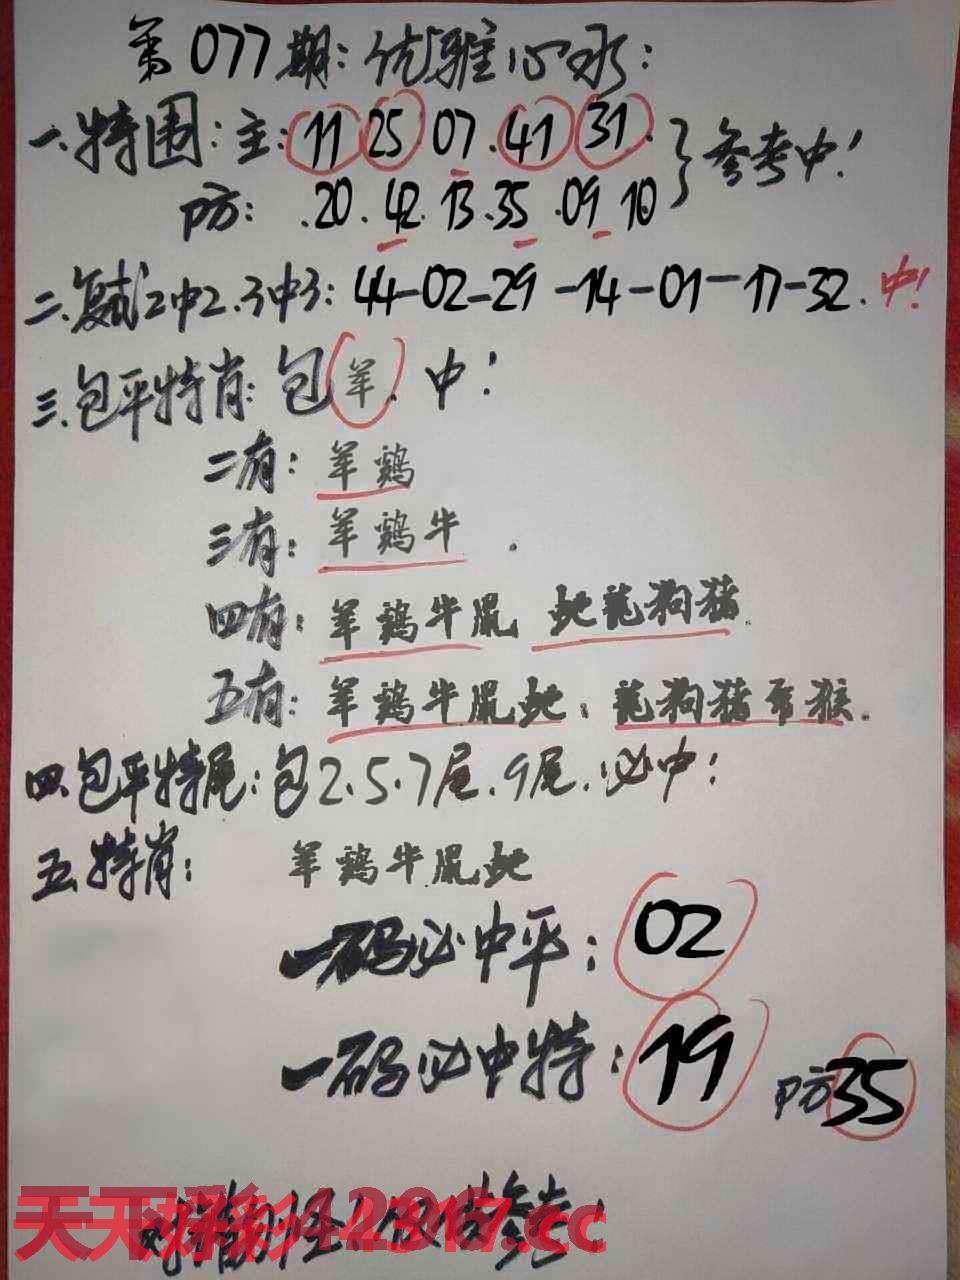 第077期:优雅心水:
一.特围:主:11 25.07.41 31. 参考中!
防:.20.42.13.35.09 10
二.复试2中2.3中3:44-02-29-14-01-17-32.中!
三.包平特肖:包羊.中!
二有:羊鸡
三有:羊鸡牛.
四有:羊鸡牛鼠 蛇龍狗猪.
五有:羊鸡牛鼠蛇:龍狗猪兔猴.
四.包平特尾:包2.5.7尾.9尾.必中!
五.特肖:羊鸡牛鼠蛇
一码必中平:02
一码必中特:19 防35
天下彩 12317.cc
参考!